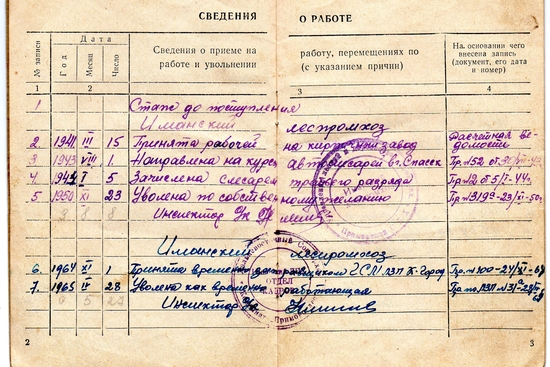 СВЕДЕНИЯ О РАБОТЕ
№ записи
Дата
Год
Месяц
Число
Сведения о приеме на работу, перемещениях по
работе и увольнении (с указанием причин)
На основании чего
внесена запись
(документ, его дата
и номер)
1 2 3 4
1 Стаж до поступления
Иманский леспромхоз
2. 1941 III 15 Принята рабочей на кирпичный завод Расчетная ве-
домость
3 1943 VIII 1. Направлена на курсы автослесарей в г. Спасск Пр. №52
4. I 5 Зачислена слесарем разряда Пр №2 от 5/I-44г
5. 1950 XI 23 Уволена по собственному желанию Пр №
Инспектор
Иманский леспромхоз
6. 1964 XI 1 Принята временно ГСМ ЛЗП Пр. №100-24/XI-64
7. 1965 IV 28 Уволена как временно работающая Пр по ЛЗП №31
Инспектор
ОТДЕЛ
КАДРОВ
2 3